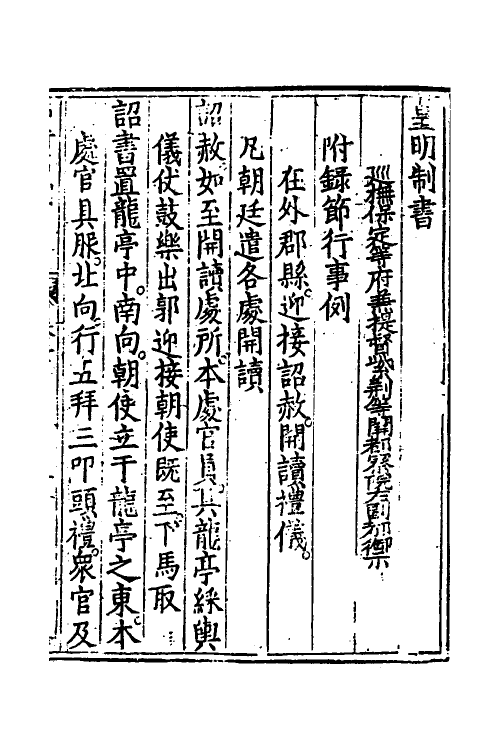 皇明制書
巡撫保定等府兼提督紫荊等關都察院左副都御
附錄節行事例
在外郡縣迎接詔赦開讀禮儀
凡朝廷遣各處開讀
詔赦如至開讀處所本處官員具龍亭綵輿
儀仗鼓樂出郭迎接朝使既至下馬取
詔書置龍亭中南向朝使立于龍亭之東本
處官具服北向行五拜三叩頭禮衆官及